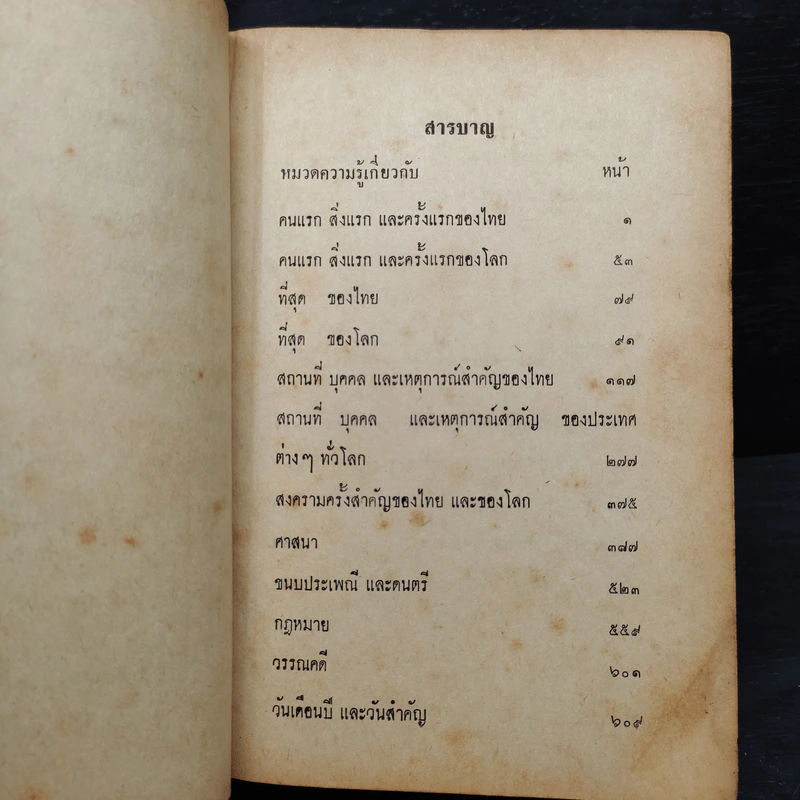 สารบาญ
หมวดความรู้เกี่ยวกับ หน้า
คนแรก สิ่งแรก และครั้งแรกของไทย ๑
คนแรก สิ่งแรก และครั้งแรกของโลก ๕๓
ที่สุด ของไทย ๗๙
ที่สุด ของโลก ๙๑
สถานที่ บุคคล และเหตุการณ์สำคัญของไทย ๑๑๗
สถานที่ บุคคล และเหตุการณ์สำคัญ ของประเทศ
ต่างๆ ทั่วโลก ๒๗๗
สงครามครั้งสำคัญของไทย และของโลก ๓๗๕
ศาสนา ๓๘๗
ขนบประเพณี และดนตรี ๕๒๓
กฎหมาย ๕๕๙
วรรณคดี ๖๐๑
วันเดือนปี และวันสำคัญ ๖๐๙